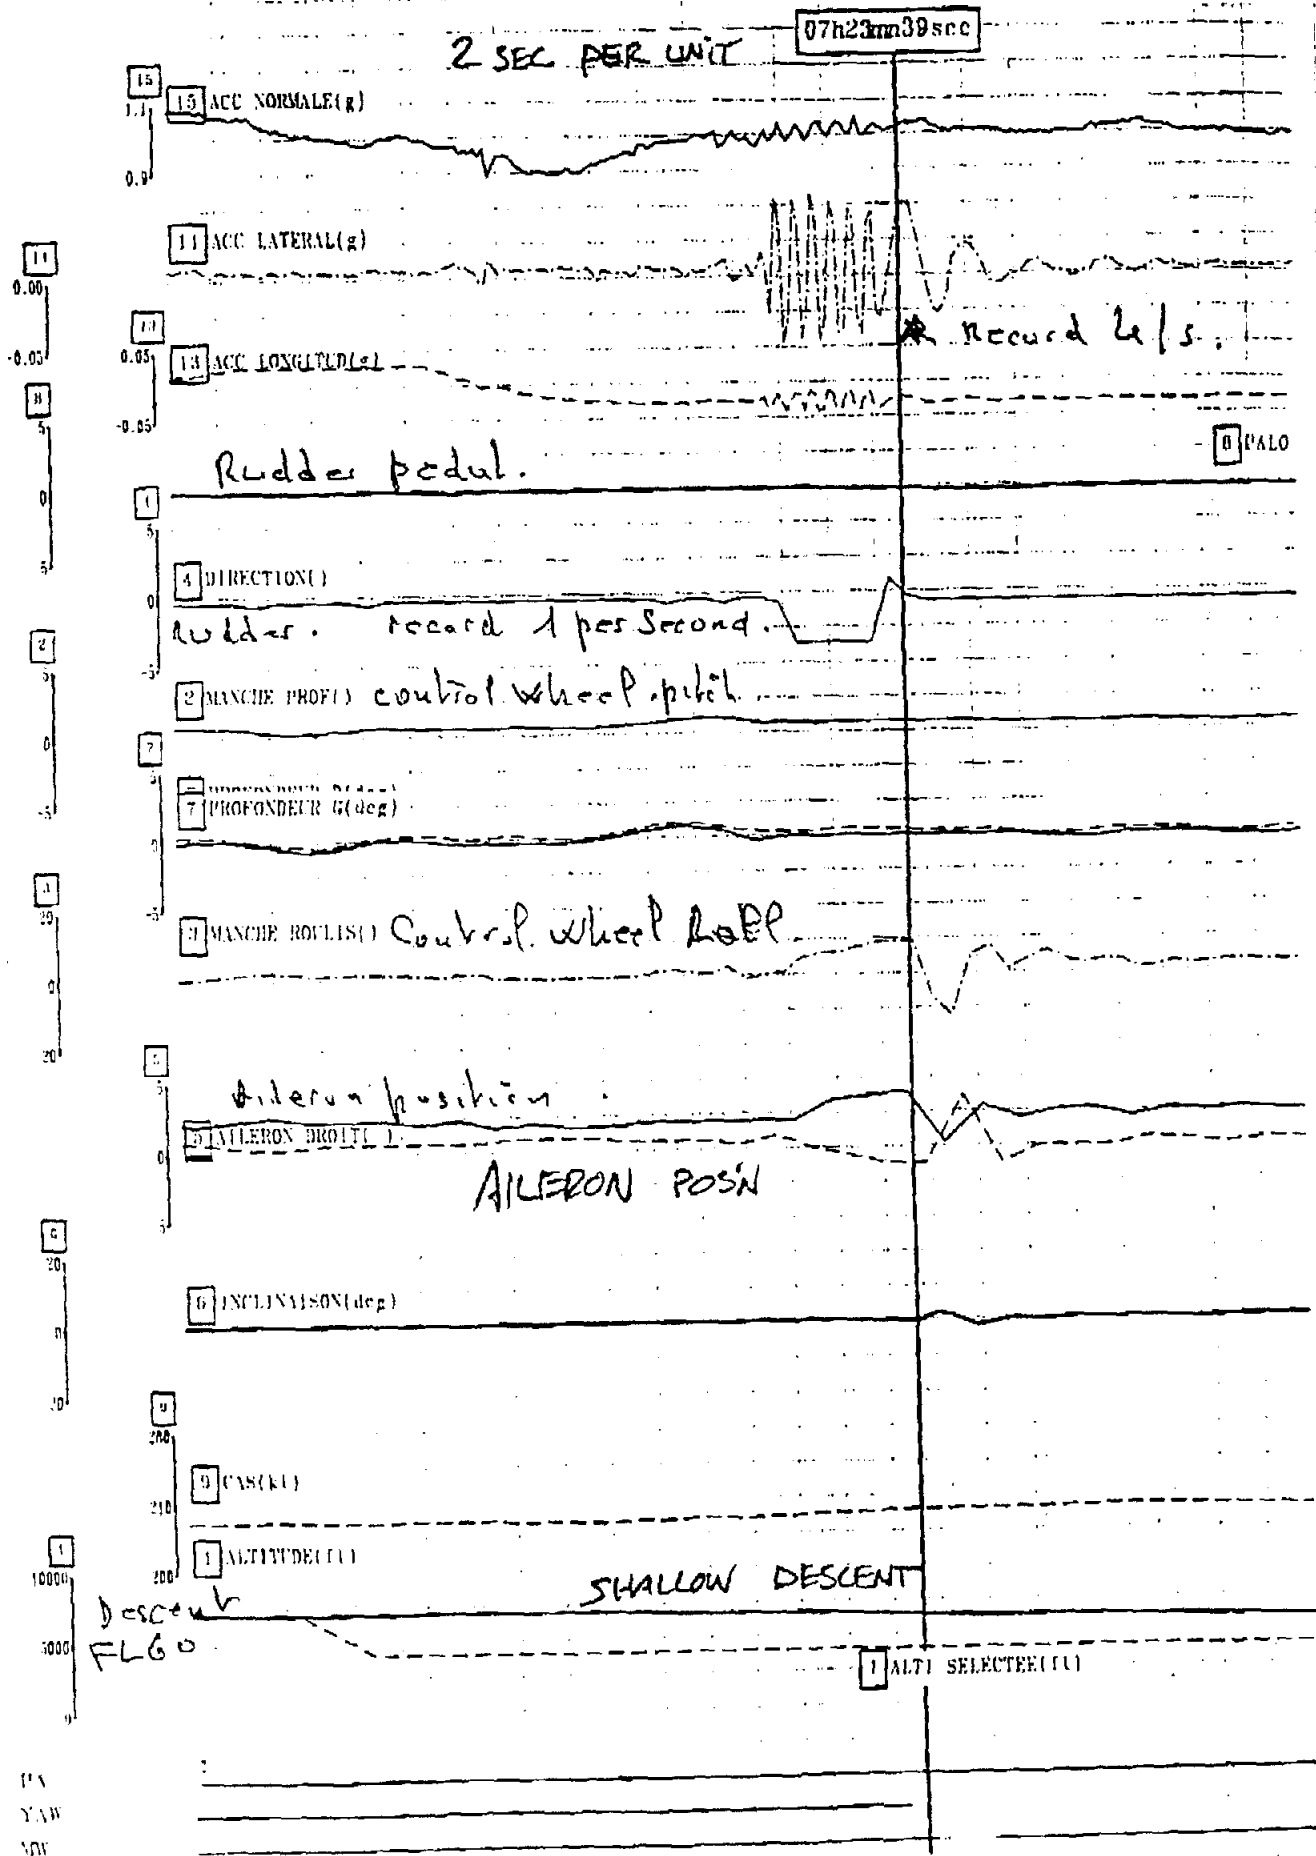 07h23mn39sec
2 SEC PER UNIT
15
15 ACC NORMALE(g)
1.1
0.9
11 ACC LATERAL(g)
11
0.00
-0.05
13
0.05
13 ACC LONGITUD(g)
-0.05
Record 4/s.
8
5
0
5
8 PALO
Rudder pedal.
5
4 DIRECTION()
0
Rudder. record 1 per Second.
-5
2
5
0
-5
2 MANCHE PROF() control wheel pitch
7
7 PROFONDEUR G(deg)
-5
3
20
0
20
3 MANCHE ROULIS() Control wheel Roll
5
5
Aileron position
5 AILERON DROIT( )
0
5
AILERON POS'N
6
20
0
20
6 INCLINAISON(deg)
9
9 CAS(kt)
210
200
1
10000
1 ALTITUDE(ft)
SHALLOW DESCENT
Descent
5000
FL60
0
1 ALTI SELECTEE(ft)
YAW